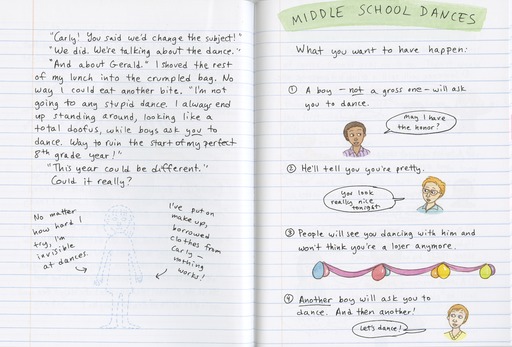 "Carly! You said we'd change the subject!"
"We did. We're talking about the dance."
"And about Gerald." I shoved the rest
of my lunch into the crumpled bag. No
way I could eat another bite. "I'm not
going to any stupid dance. I always end
up standing around, looking like a
total doofus, while boys ask you to
dance. Way to ruin the start of my perfect
8th grade year!"
"This year could be different."
Could it really?
No matter
how hard I
try, I'm
invisible
at dances.
I've put on
make up,
borrowed
clothes from
Carly –
nothing
works!
MIDDLE SCHOOL DANCES
What you want to have happen:
① A boy – not a gross one – will ask
you to dance.
may I have
the honor?
② He'll tell you you're pretty.
You look
really nice
tonight.
③ People will see you dancing with him and
won't think you're a loser anymore.
④ Another boy will ask you to
dance. And then another!
Let's dance!